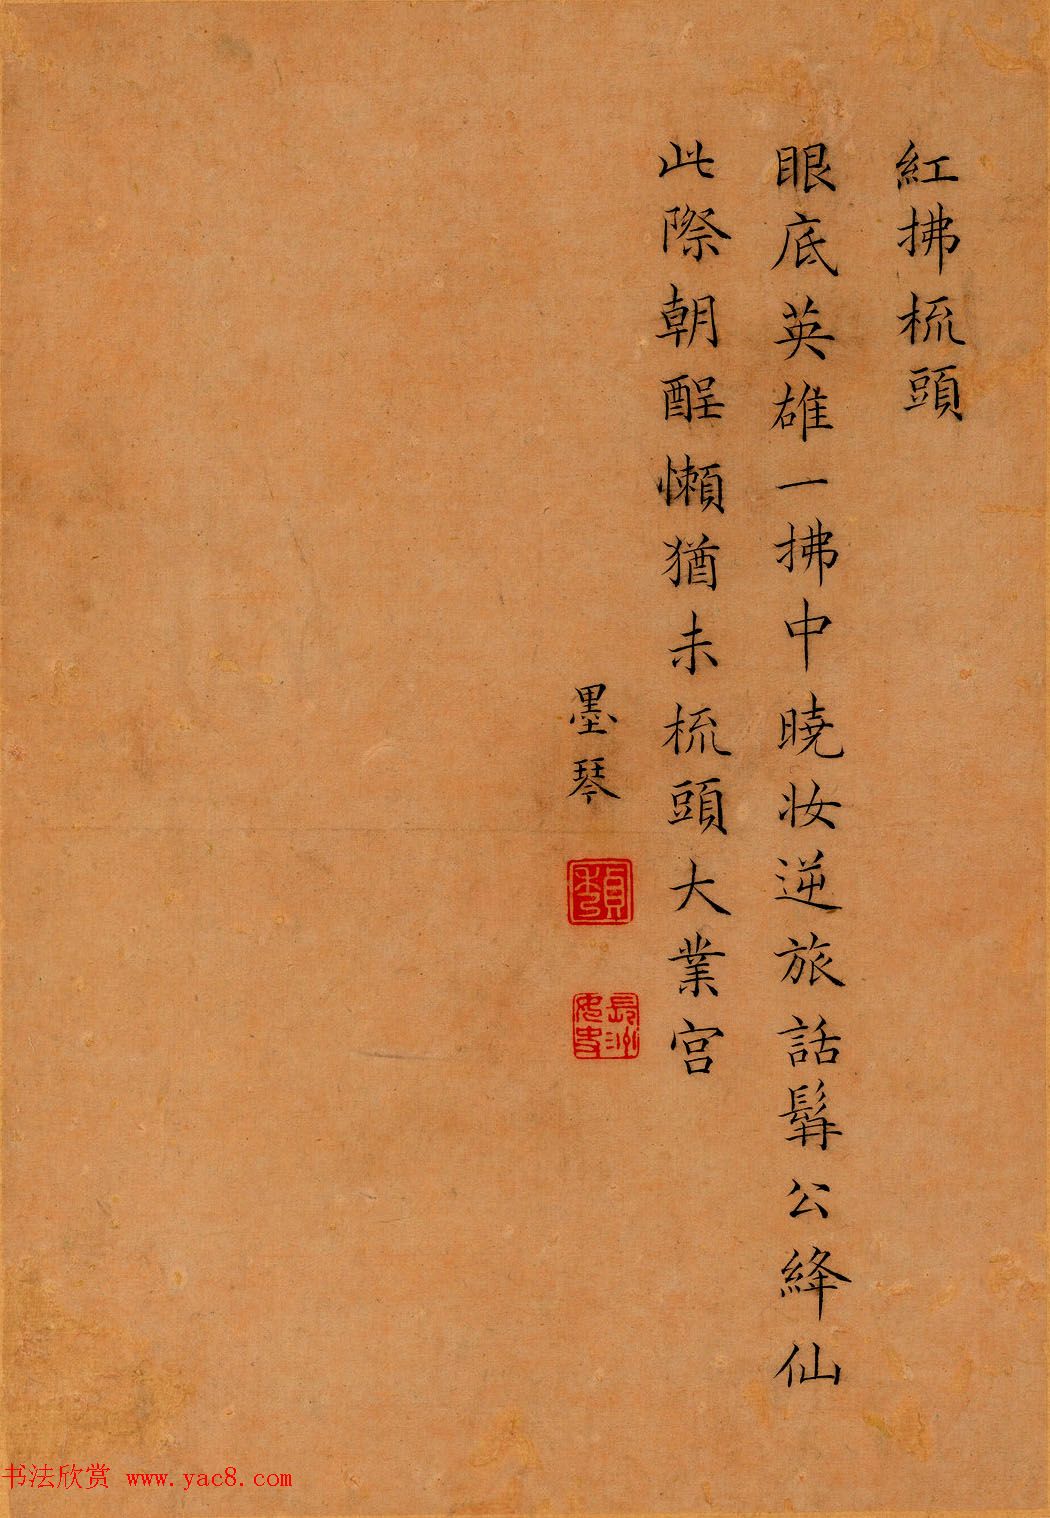 紅拂梳頭
眼底英雄一拂中暁妆逆旅話髯公絳仙
此際朝酲懶猶未梳頭大業宫
墨琴
貞秀
長洲女史
书法欣赏 www.yac8.com